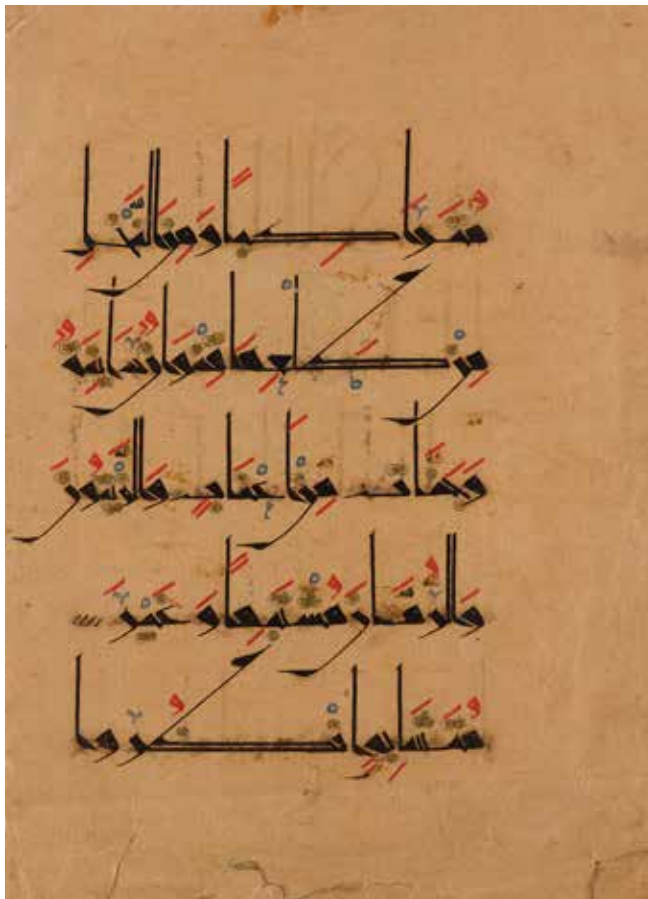 مُتَرَاكِبًا وَمِنَ النَّخْلِ
مِنْ طَلْعِهَا قِنْوَانٌ دَانِيَةٌ
وَجَنَّاتٍ مِنْ أَعْنَابٍ وَالزَّيْتُونَ
وَالرُّمَّانَ مُشْتَبِهًا وَغَيْرَ
مُتَشَابِهٍ انْظُرُوا